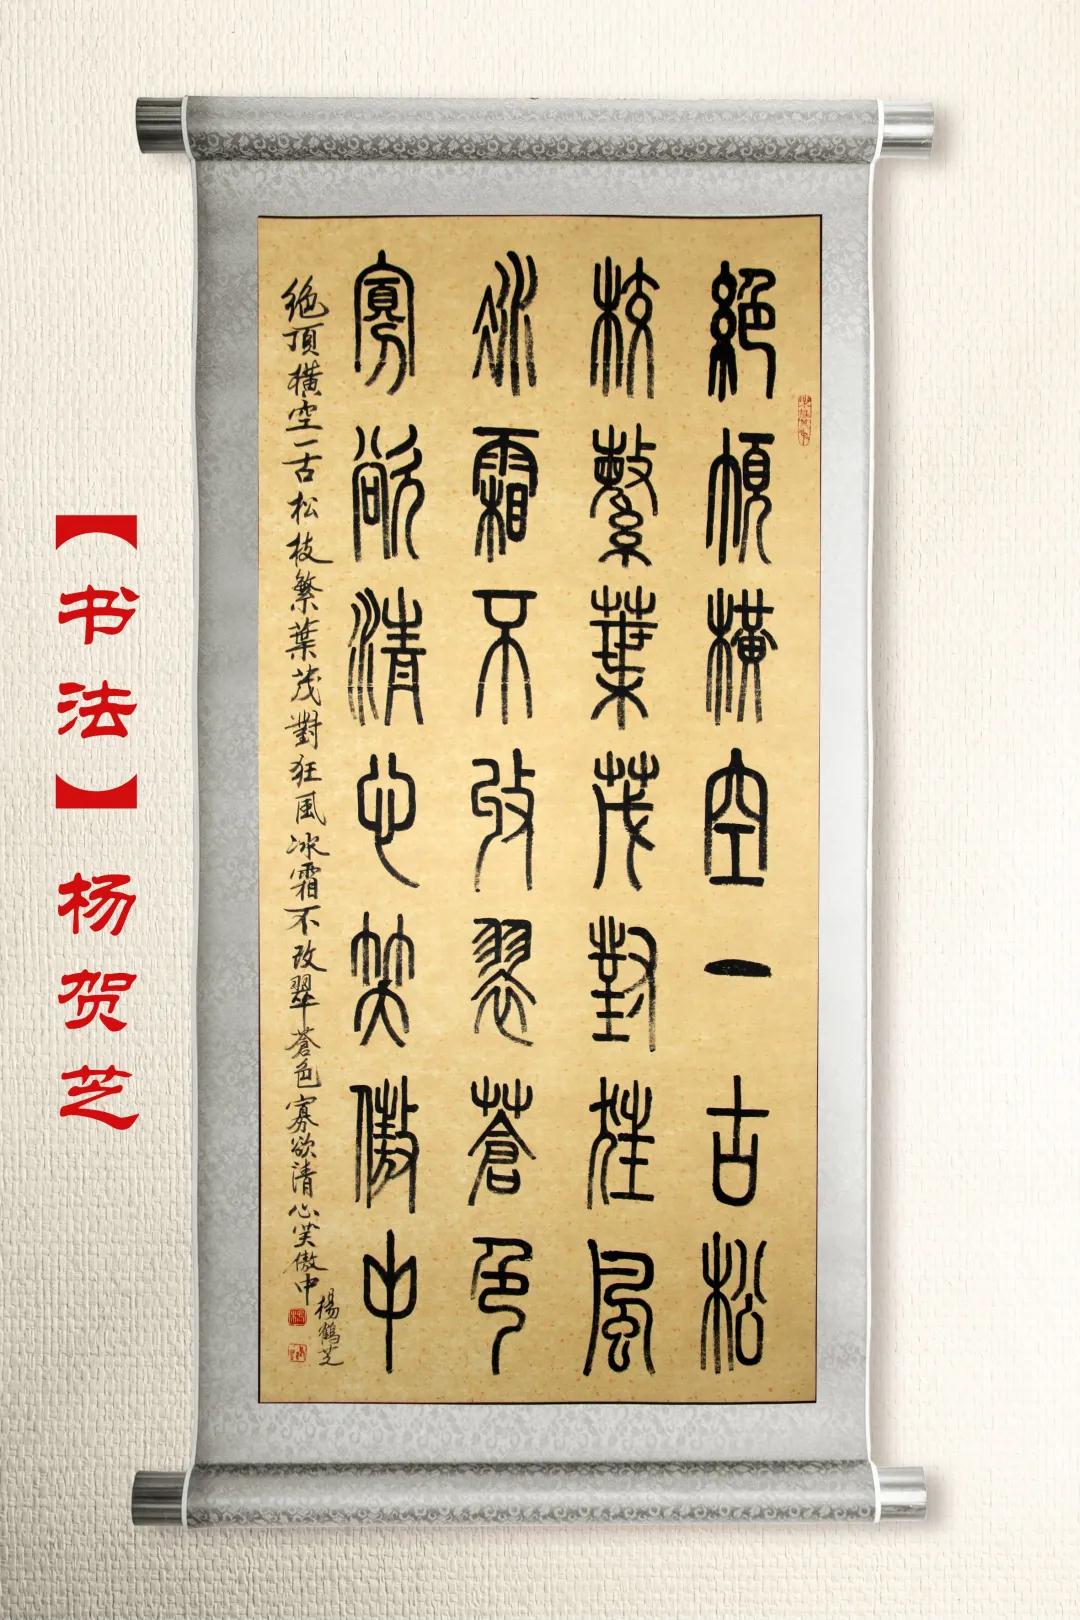 絕頂橫空一古松
枝繁葉茂對狂風
冰霜不改翠蒼色
寡欲清心笑傲中
绝顶橫空一古松枝繁葉茂對狂風冰霜不改翠蒼色寡欲清心笑傲中
楊鶴芝
【书法】杨贺芝